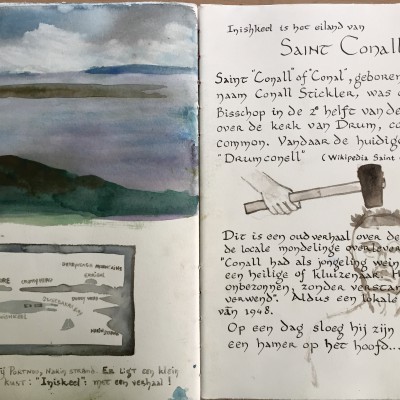 Inishkeel is het eiland van
Saint Conall
Saint "Conall" of "Conal", geboren
naam Conall Stickler, was
Bisschop in de 2e helft van de
over de kerk van Drum, co
common. Vandaar de huidige
"Drumconell" (Wikipedia Saint
Dit is een oud verhaal over de
de locale mondelinge overlever
"Conall had als jongeling wein
een heilige of kluizenaar. H
onbezonnen, zonder verstan
verwend". Aldus een lokale
van 1948.
Op een dag sloeg hij zijn
een hamer op het hoofd...
Portnoo, Narin strand. Er ligt een klein
kunt: "Iniskeel": met een verhaal!